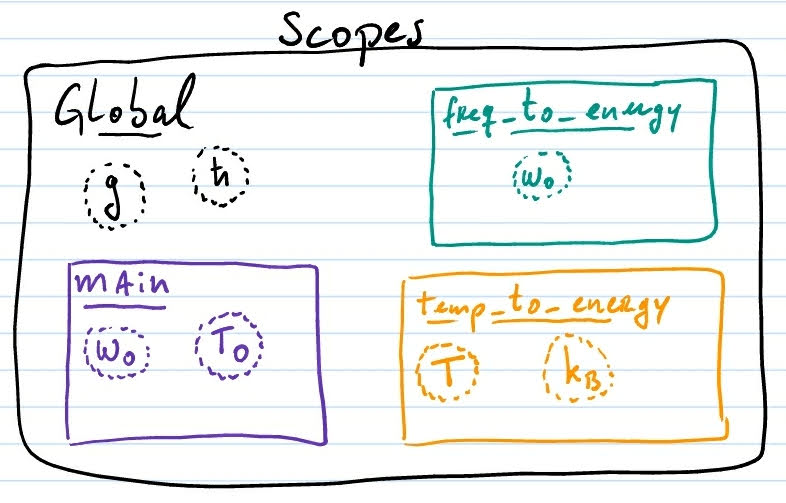 Scopes
Global
g
ħ
freq_to_energy
ω₀
main
ω₀
T₀
temp_to_energy
T
k_B